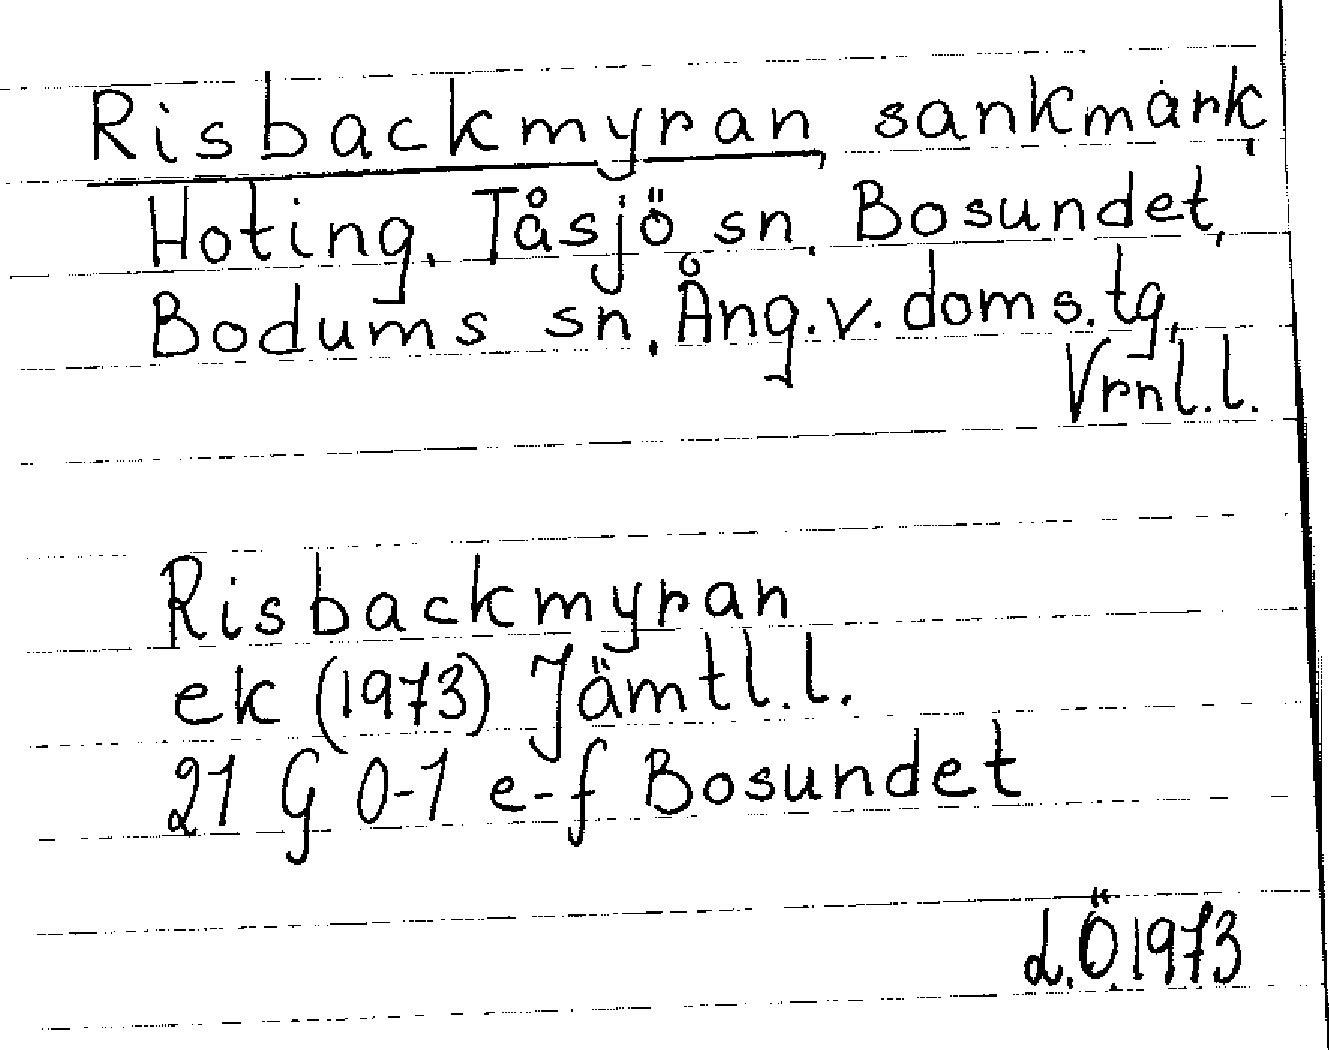 Risbackmyran, sankmark,
Hoting, Tåsjö sn, Bosundet,
Bodums sn, Ång. v. doms. tg,
Vrnl. l.
Risbackmyran
ek (1973) Jämtl. l.
21 G 0-1 e-f Bosundet
L.Ö. 1973